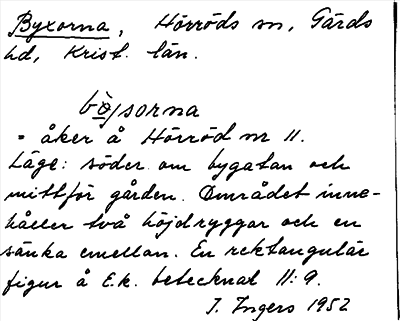 Byxorna, Hörröds sn, Gärds
hd, Krist. län.
bø̀/sorna
= åker å Hörröd nr 11.
Läge: söder om bygatan och
mittför gården. Området inne-
håller två höjdryggar och en
sänka emellan. En rektangulär
figur å E.k. betecknad 11:9.
J. Ingers 1952